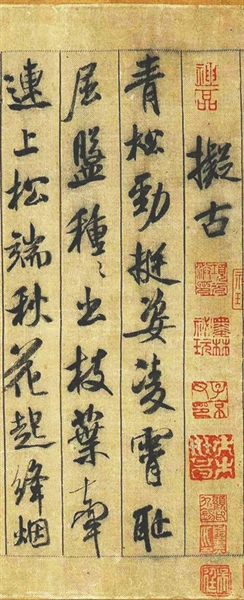 神品
擬古
墨林
祕玩
青松勁挺姿凌霄耻
屈盤種〻出枝葉牽
連上松端秋花起絳烟